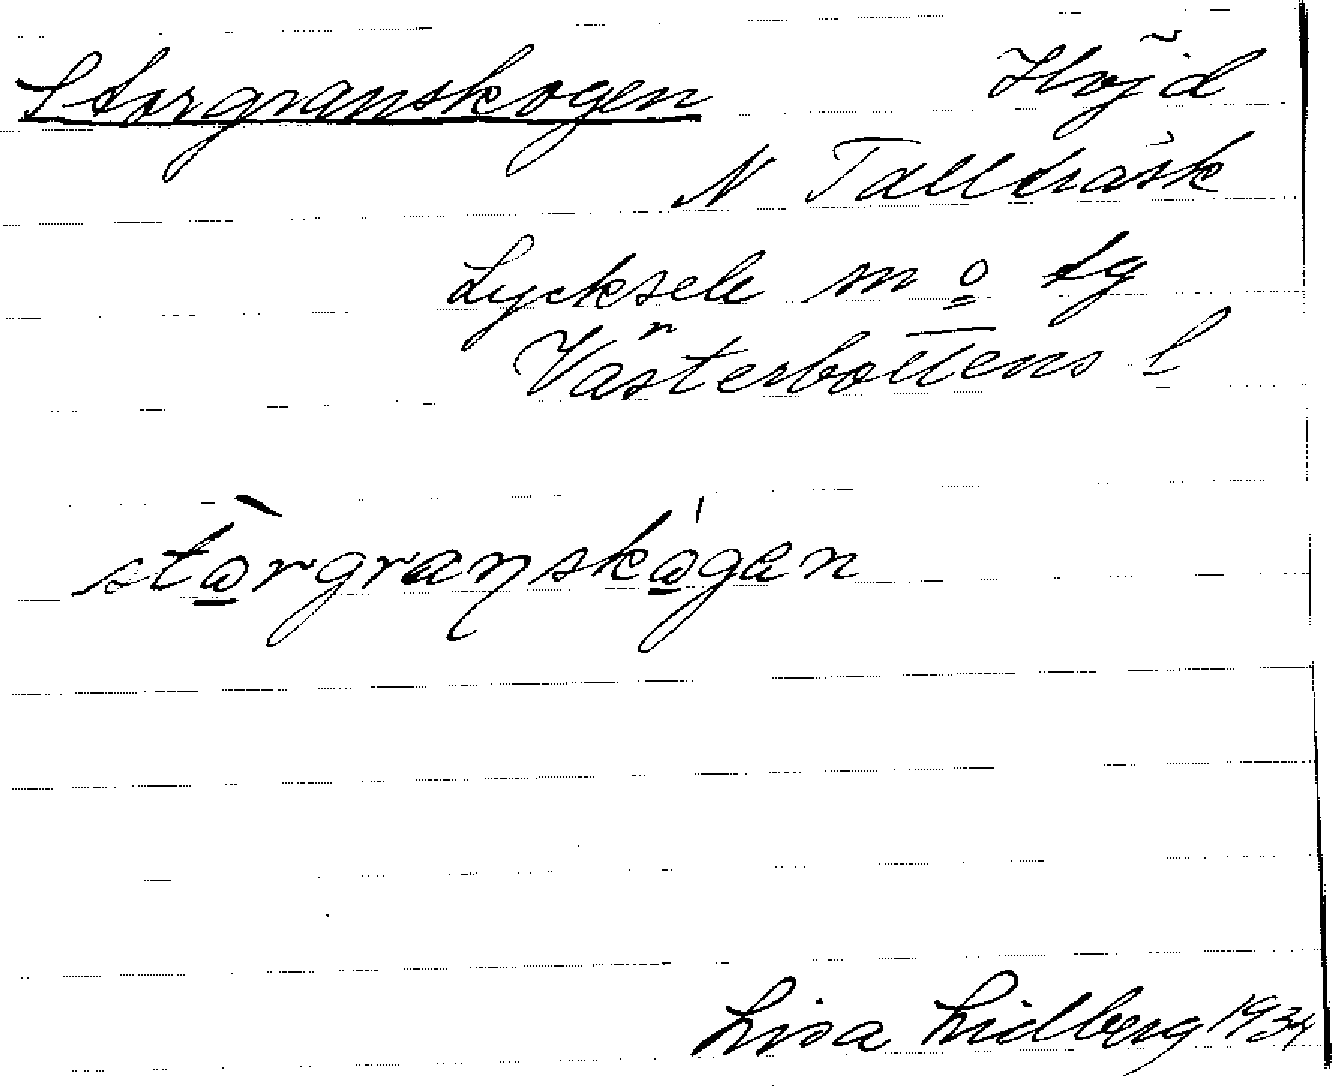 Storgranskogen Höjd
N Tallträsk
Lycksele m o lg
Västerbottens l
stòrgranskógen
Lisa Lidberg 1934